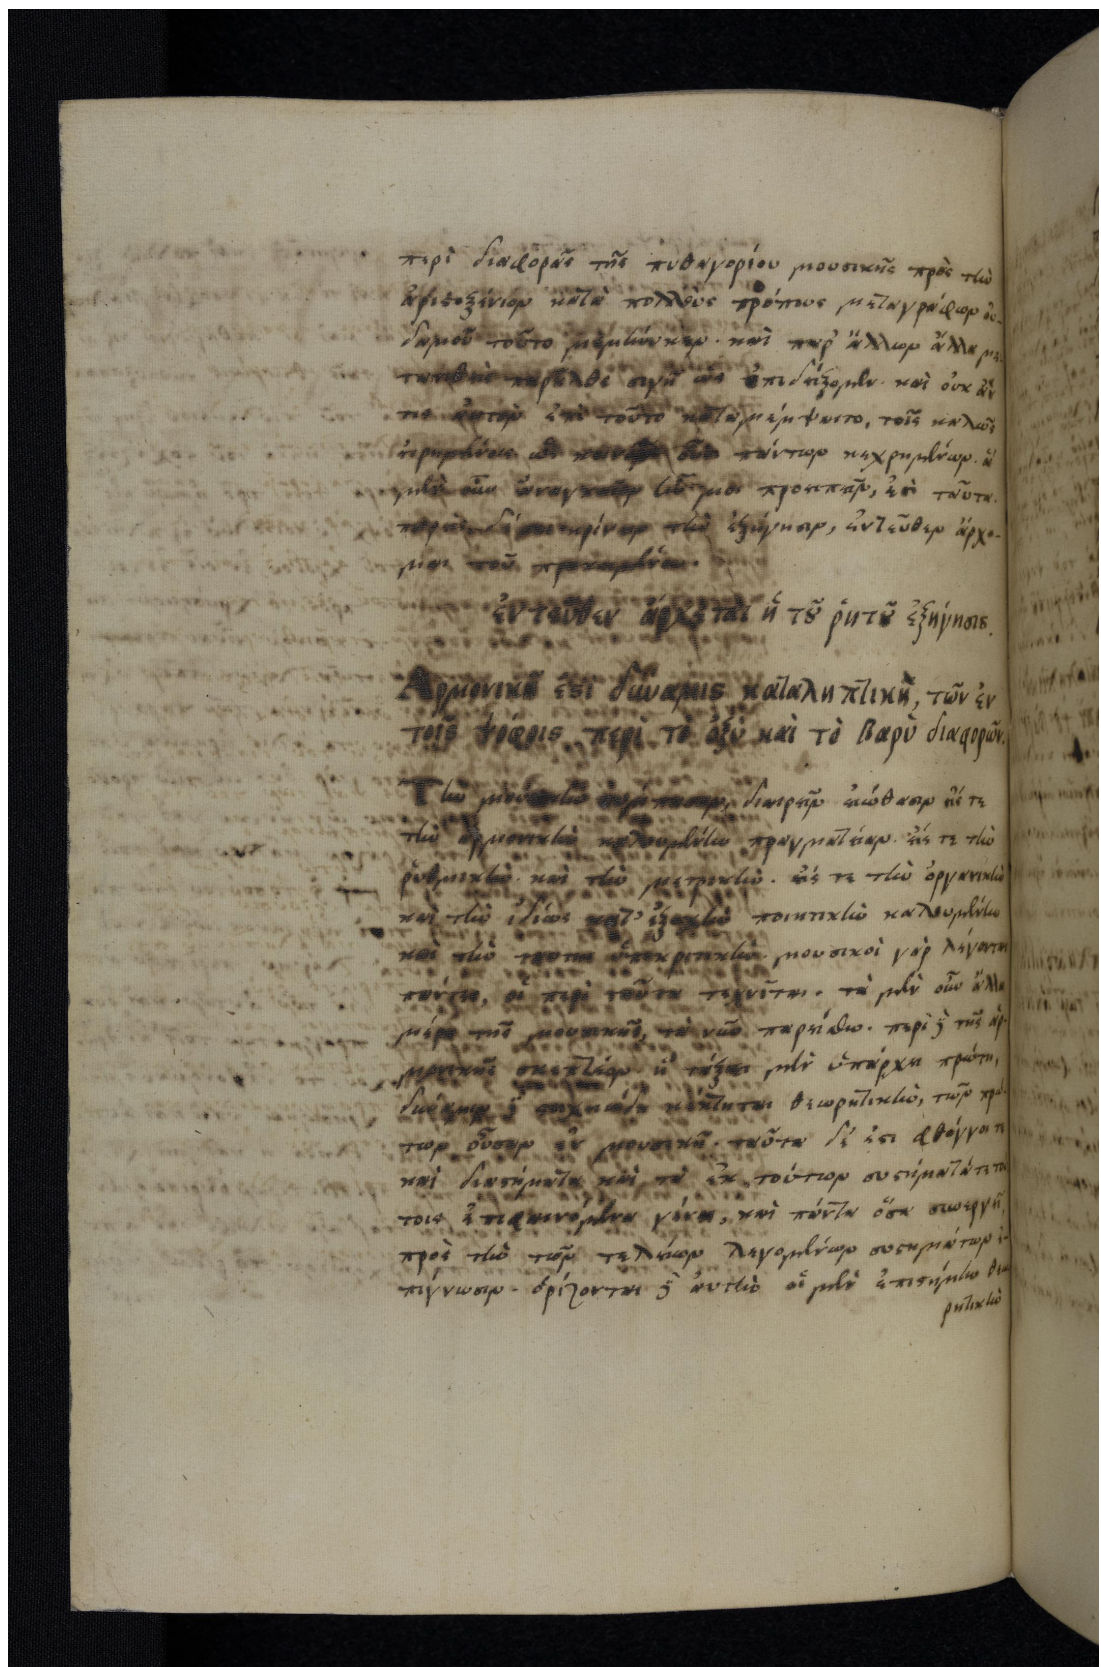 περὶ διαφορᾶς τῆς πυθαγορίου μουσικῆς πρὸς τὴν
ἀριστοξένιον κατὰ πολλοὺς τρόπους μεταγράφων οὐ-
δαμοῦ τοῦτο μεμήνυκεν. καὶ παρ' ἄλλων ἄλλα με-
τατιθεὶς παρῆλθε σιγῇ ὡς ἐπιδείξομεν. καὶ οὐκ ἄν
τις αὐτὸν ἐπὶ τοῦτο καταμέμψαιτο, τοῖς καλῶς
εἰρημένοις ὡς πάντων κεχρημένων. ἃ
μὲν οὖν ἀναγκαῖον ἦν μοι προειπεῖν, ἐστὶ ταῦτα.
τὴν ἐξήγησιν, ἐντεῦθεν ἄρχο-
μαι τοῦ προκειμένου.
ἐντεῦθεν ἄρχεται ἡ τοῦ ῥητοῦ ἐξήγησις.
Ἁρμονική ἐστι δύναμις καταληπτικὴ, τῶν ἐν
τοῖς ψόφοις περὶ τὸ ὀξὺ καὶ τὸ βαρὺ διαφορῶν.
Τὴν μουσικὴν σύμπασαν, διαιρεῖν εἰώθασιν εἴς τε
τὴν ἁρμονικὴν καλουμένην πραγματείαν. εἴς τε τὴν
ῥυθμικὴν. καὶ τὴν μετρικὴν. εἴς τε τὴν ὀργανικὴν
καὶ τὴν ἰδίως κατ' ἐξοχὴν ποιητικὴν καλουμένην
καὶ τὴν ταύτης ὑποκριτικὴν. μουσικοὶ γὰρ λέγονται
πάντες, οἱ περὶ ταῦτα τεχνῖται. τὰ μὲν οὖν ἄλλα
μέρη τῆς μουσικῆς, τὰ νῦν παρείσθω. περὶ δὲ τῆς ἁρ-
μονικῆς σκεπτέον. ἣ τάξει μὲν ὑπάρχει πρώτη,
δύναμιν δὲ στοιχειώδη κέκτηται θεωρητικὴν, τῶν πρώ-
των οὖσαν ἐν μουσικῇ. ταῦτα δέ ἐστι φθόγγοι τε
καὶ διαστήματα καὶ τὰ ἐκ τούτων συστήματά τε τού-
τοις ἐπιφαινόμενα γένη, καὶ πάντα ὅσα συνεργεῖ,
πρὸς τὴν τῶν τελείων λεγομένων συστημάτων ἐ-
πίγνωσιν. ὁρίζονται δὲ αὐτὴν οἱ μὲν ἐπιστήμην θεω
ρητικὴν